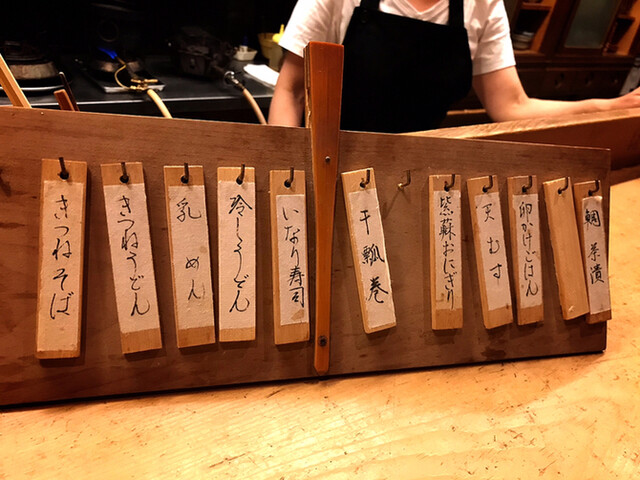 鯛茶漬
卵かけごはん
天むす
紫蘇おにぎり
干瓢巻
いなり寿司
冷しうどん
乳めん
きつねうどん
きつねそば